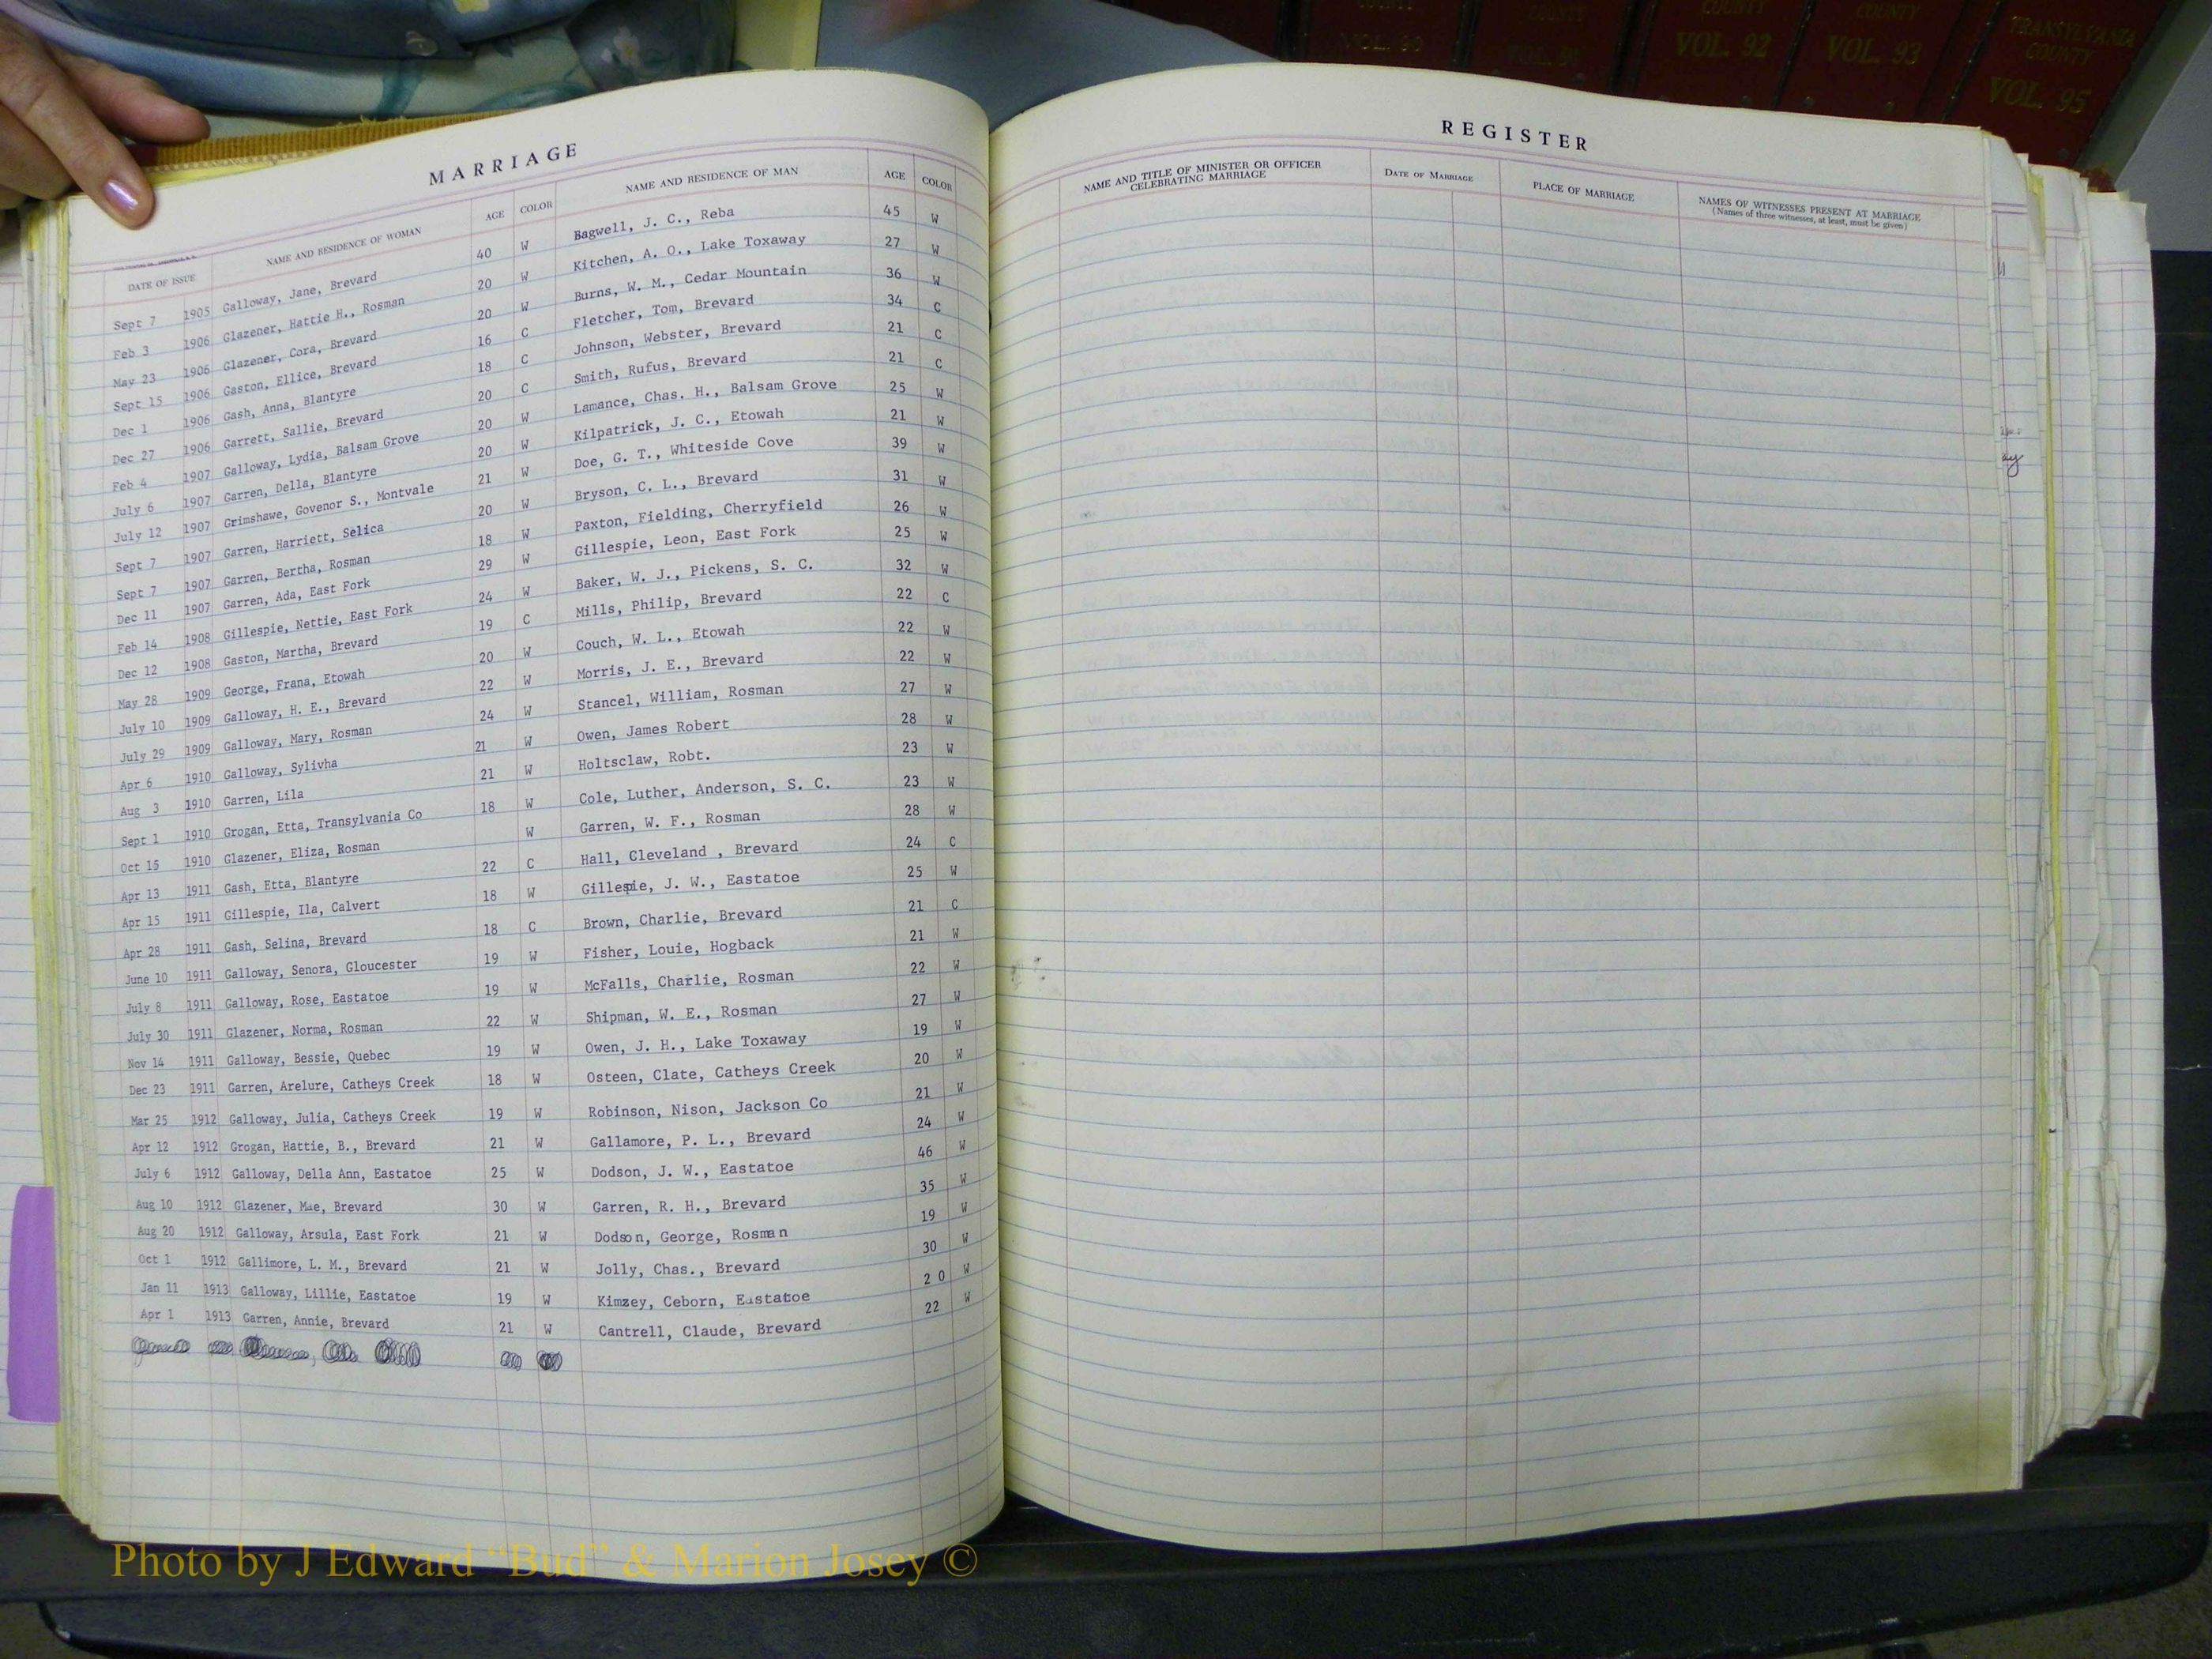 COUNTY
VOL. 90
COUNTY
COUNTY
VOL. 92
COUNTY
VOL. 93
TRANSYLVANIA
COUNTY
VOL. 95
MARRIAGE
DATE OF ISSUE NAME AND RESIDENCE OF WOMAN AGE COLOR NAME AND RESIDENCE OF MAN AGE COLOR
Sept 7 1905 Galloway, Jane, Brevard 40 W Bagwell, J. C., Reba 45 W
Feb 3 1906 Glazener, Hattie H., Rosman 20 W Kitchen, A. O., Lake Toxaway 27 W
May 23 1906 Glazener, Cora, Brevard 20 W Burns, W. M., Cedar Mountain 36 W
Sept 15 1906 Gaston, Ellice, Brevard 16 C Fletcher, Tom, Brevard 34 C
Dec 1 1906 Gash, Anna, Blantyre 18 C Johnson, Webster, Brevard 21 C
Dec 27 1906 Garrett, Sallie, Brevard 20 C Smith, Rufus, Brevard 21 C
Feb 4 1907 Galloway, Lydia, Balsam Grove 20 W Lamance, Chas. H., Balsam Grove 25 W
July 6 1907 Garren, Della, Blantyre 20 W Kilpatrick, J. C., Etowah 21 W
July 12 1907 Grimshawe, Govenor S., Montvale 21 W Doe, G. T., Whiteside Cove 39 W
Sept 7 1907 Garren, Harriett, Selica 20 W Bryson, C. L., Brevard 31 W
Sept 7 1907 Garren, Bertha, Rosman 18 W Paxton, Fielding, Cherryfield 26 W
Dec 11 1907 Garren, Ada, East Fork 29 W Gillespie, Leon, East Fork 25 W
Feb 14 1908 Gillespie, Nettie, East Fork 24 W Baker, W. J., Pickens, S. C. 32 W
Dec 12 1908 Gaston, Martha, Brevard 19 C Mills, Philip, Brevard 22 C
May 28 1909 George, Frana, Etowah 20 W Couch, W. L., Etowah 22 W
July 10 1909 Galloway, H. E., Brevard 22 W Morris, J. E., Brevard 22 W
July 29 1909 Galloway, Mary, Rosman 24 W Stancel, William, Rosman 27 W
Apr 6 1910 Galloway, Sylivha 21 W Owen, James Robert 28 W
Aug 3 1910 Garren, Lila 21 W Holtsclaw, Robt. 23 W
Sept 1 1910 Grogan, Etta, Transylvania Co 18 W Cole, Luther, Anderson, S. C. 23 W
Oct 15 1910 Glazener, Eliza, Rosman W Garren, W. F., Rosman 28 W
Apr 13 1911 Gash, Etta, Blantyre 22 C Hall, Cleveland , Brevard 24 C
Apr 15 1911 Gillespie, Ila, Calvert 18 W Gillespie, J. W., Eastatoe 25 W
Apr 28 1911 Gash, Selina, Brevard 18 C Brown, Charlie, Brevard 21 C
June 10 1911 Galloway, Senora, Gloucester 19 W Fisher, Louie, Hogback 21 W
July 8 1911 Galloway, Rose, Eastatoe 19 W McFalls, Charlie, Rosman 22 W
July 30 1911 Glazener, Norma, Rosman 22 W Shipman, W. E., Rosman 27 W
Nov 14 1911 Galloway, Bessie, Quebec 19 W Owen, J. H., Lake Toxaway 19 W
Dec 23 1911 Garren, Arelure, Catheys Creek 18 W Osteen, Clate, Catheys Creek 20 W
Mar 25 1912 Galloway, Julia, Catheys Creek 19 W Robinson, Nison, Jackson Co 21 W
Apr 12 1912 Grogan, Hattie, B., Brevard 21 W Gallamore, P. L., Brevard 24 W
July 6 1912 Galloway, Della Ann, Eastatoe 25 W Dodson, J. W., Eastatoe 46 W
Aug 10 1912 Glazener, Mae, Brevard 30 W Garren, R. H., Brevard 35 W
Aug 20 1912 Galloway, Arsula, East Fork 21 W Dodson, George, Rosman 19 W
Oct 1 1912 Gallimore, L. M., Brevard 21 W Jolly, Chas., Brevard 30 W
Jan 11 1913 Galloway, Lillie, Eastatoe 19 W Kimzey, Ceborn, Eastatoe 2 0 W
Apr 1 1913 Garren, Annie, Brevard 21 W Cantrell, Claude, Brevard 22 W
REGISTER
NAME AND TITLE OF MINISTER OR OFFICER CELEBRATING MARRIAGE DATE OF MARRIAGE PLACE OF MARRIAGE NAMES OF WITNESSES PRESENT AT MARRIAGE
(Names of three witnesses, at least, must be given)
Photo by J Edward “Bud” & Marion Josey ©